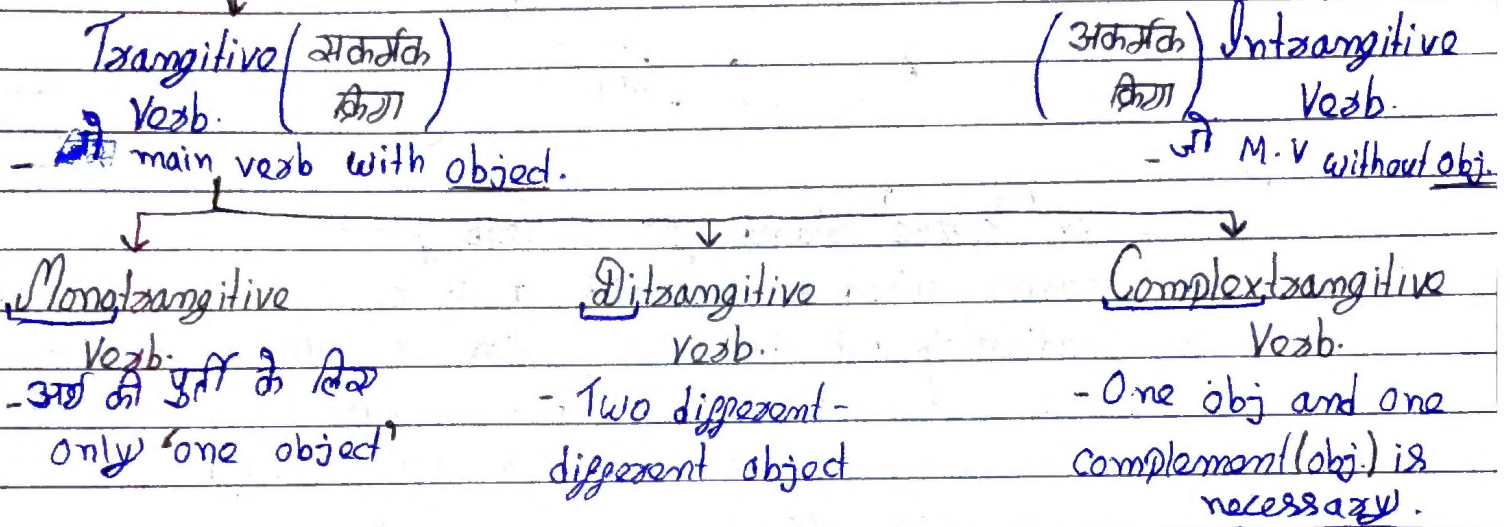 Trangitive (सकर्मक
Verb. क्रिया)
- जो main verb with object.
(अकर्मक Intrangitive
क्रिया) Verb.
- जो M.V without obj.
Monotrangitive
Verb.
- अर्थ की पुर्ती के लिए
only 'one object'
Ditrangitive
Verb.
- Two different-
different object
Complextrangitive
Verb.
- One obj and one
complement (obj.) is
necessary.